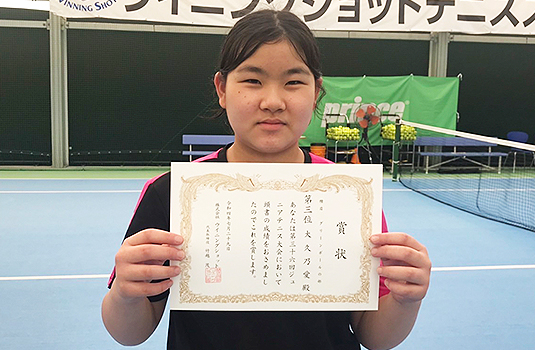 WINNING SHOT
ウイニングショットテニス
prince
賞状
第三位 大久乃愛殿
あなたは第三十六回ジュ
ニアテニス大会において
頭書の成績をおさめまし
たのでこれを賞します。
令和四年七月二十九日
株式会社ウイニングショット